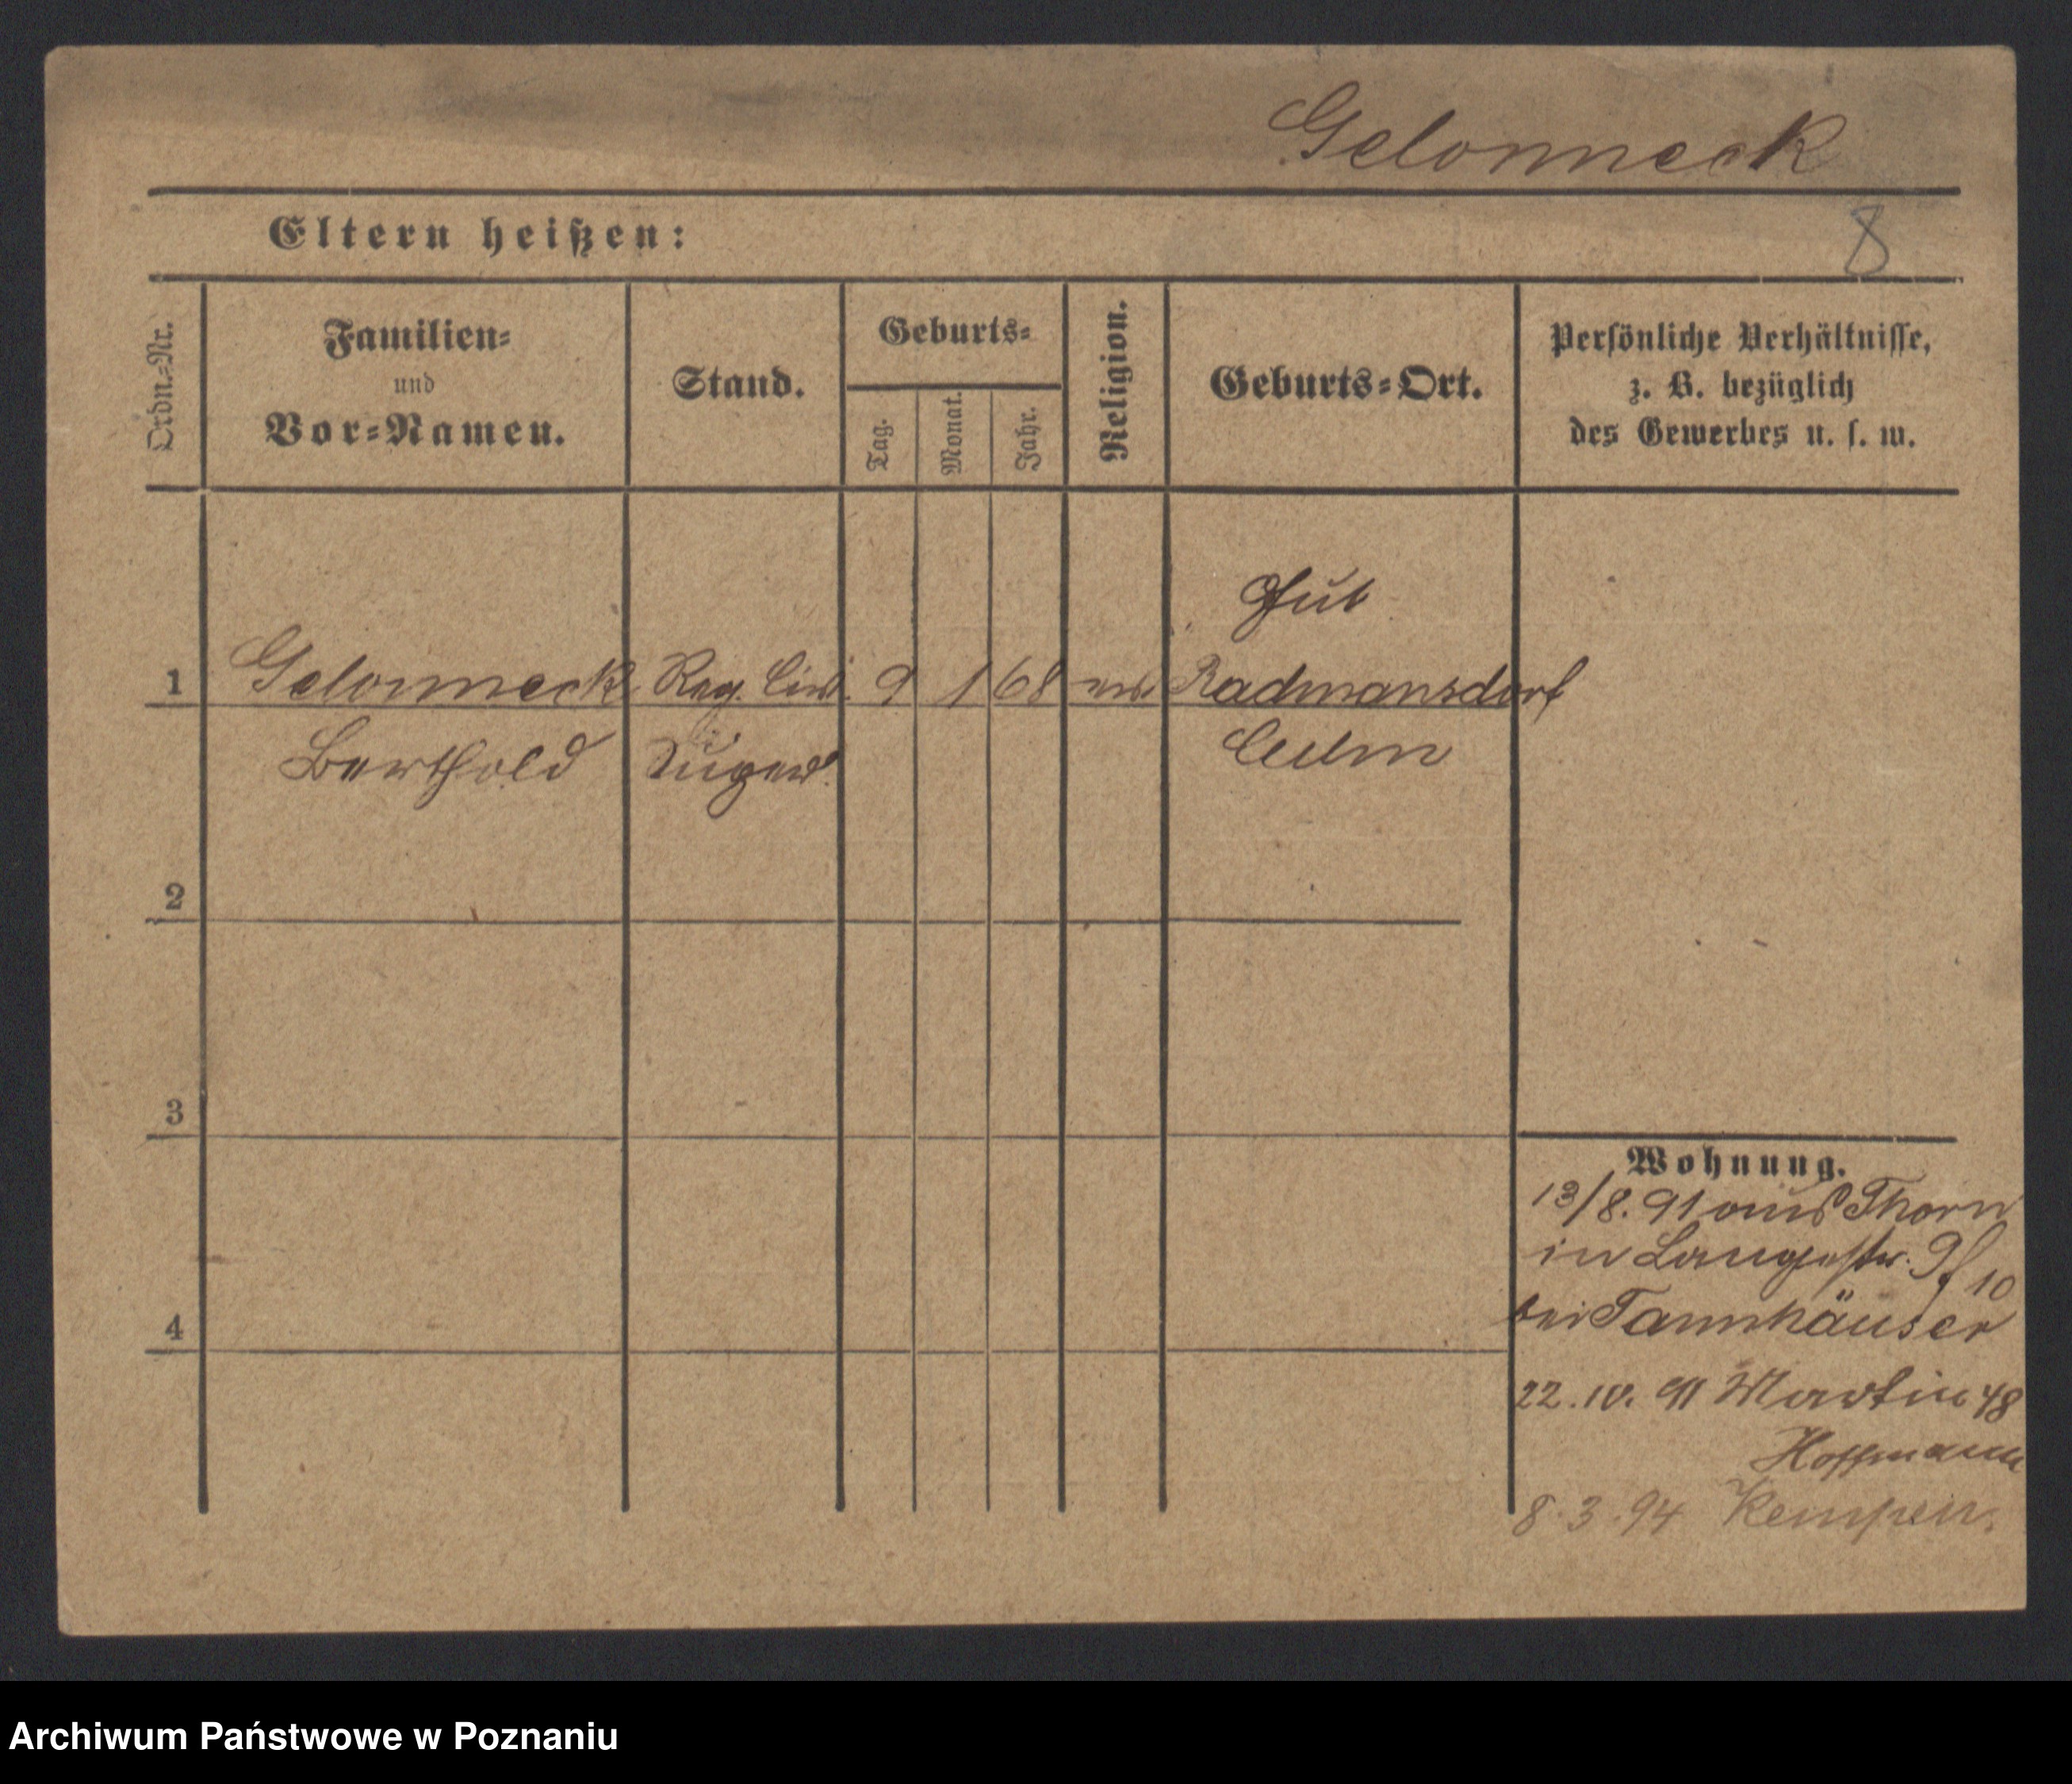 Gelonneck
Eltern heißen:
8
Ordn.-Nr.
Familien-
und
Vor-Namen.
Stand.
Geburts-
Tag.
Monat.
Jahr.
Religion.
Geburts-Ort.
Persönliche Verhältnisse,
z. B. bezüglich
des Gewerbes u. s. w.
Gut
1 Gelonneck Reg. Civ. 9 1 68 ev Radmansdorf
Berthold Super. Culm
2
3
4
Wohnung.
13/8. 91 aus Thorn
in Langestr. 9/10
bei Tannhäuser
22.10. 91 Martin 48
Hoffmann
8.3.94 Kempen.
Archiwum Państwowe w Poznaniu